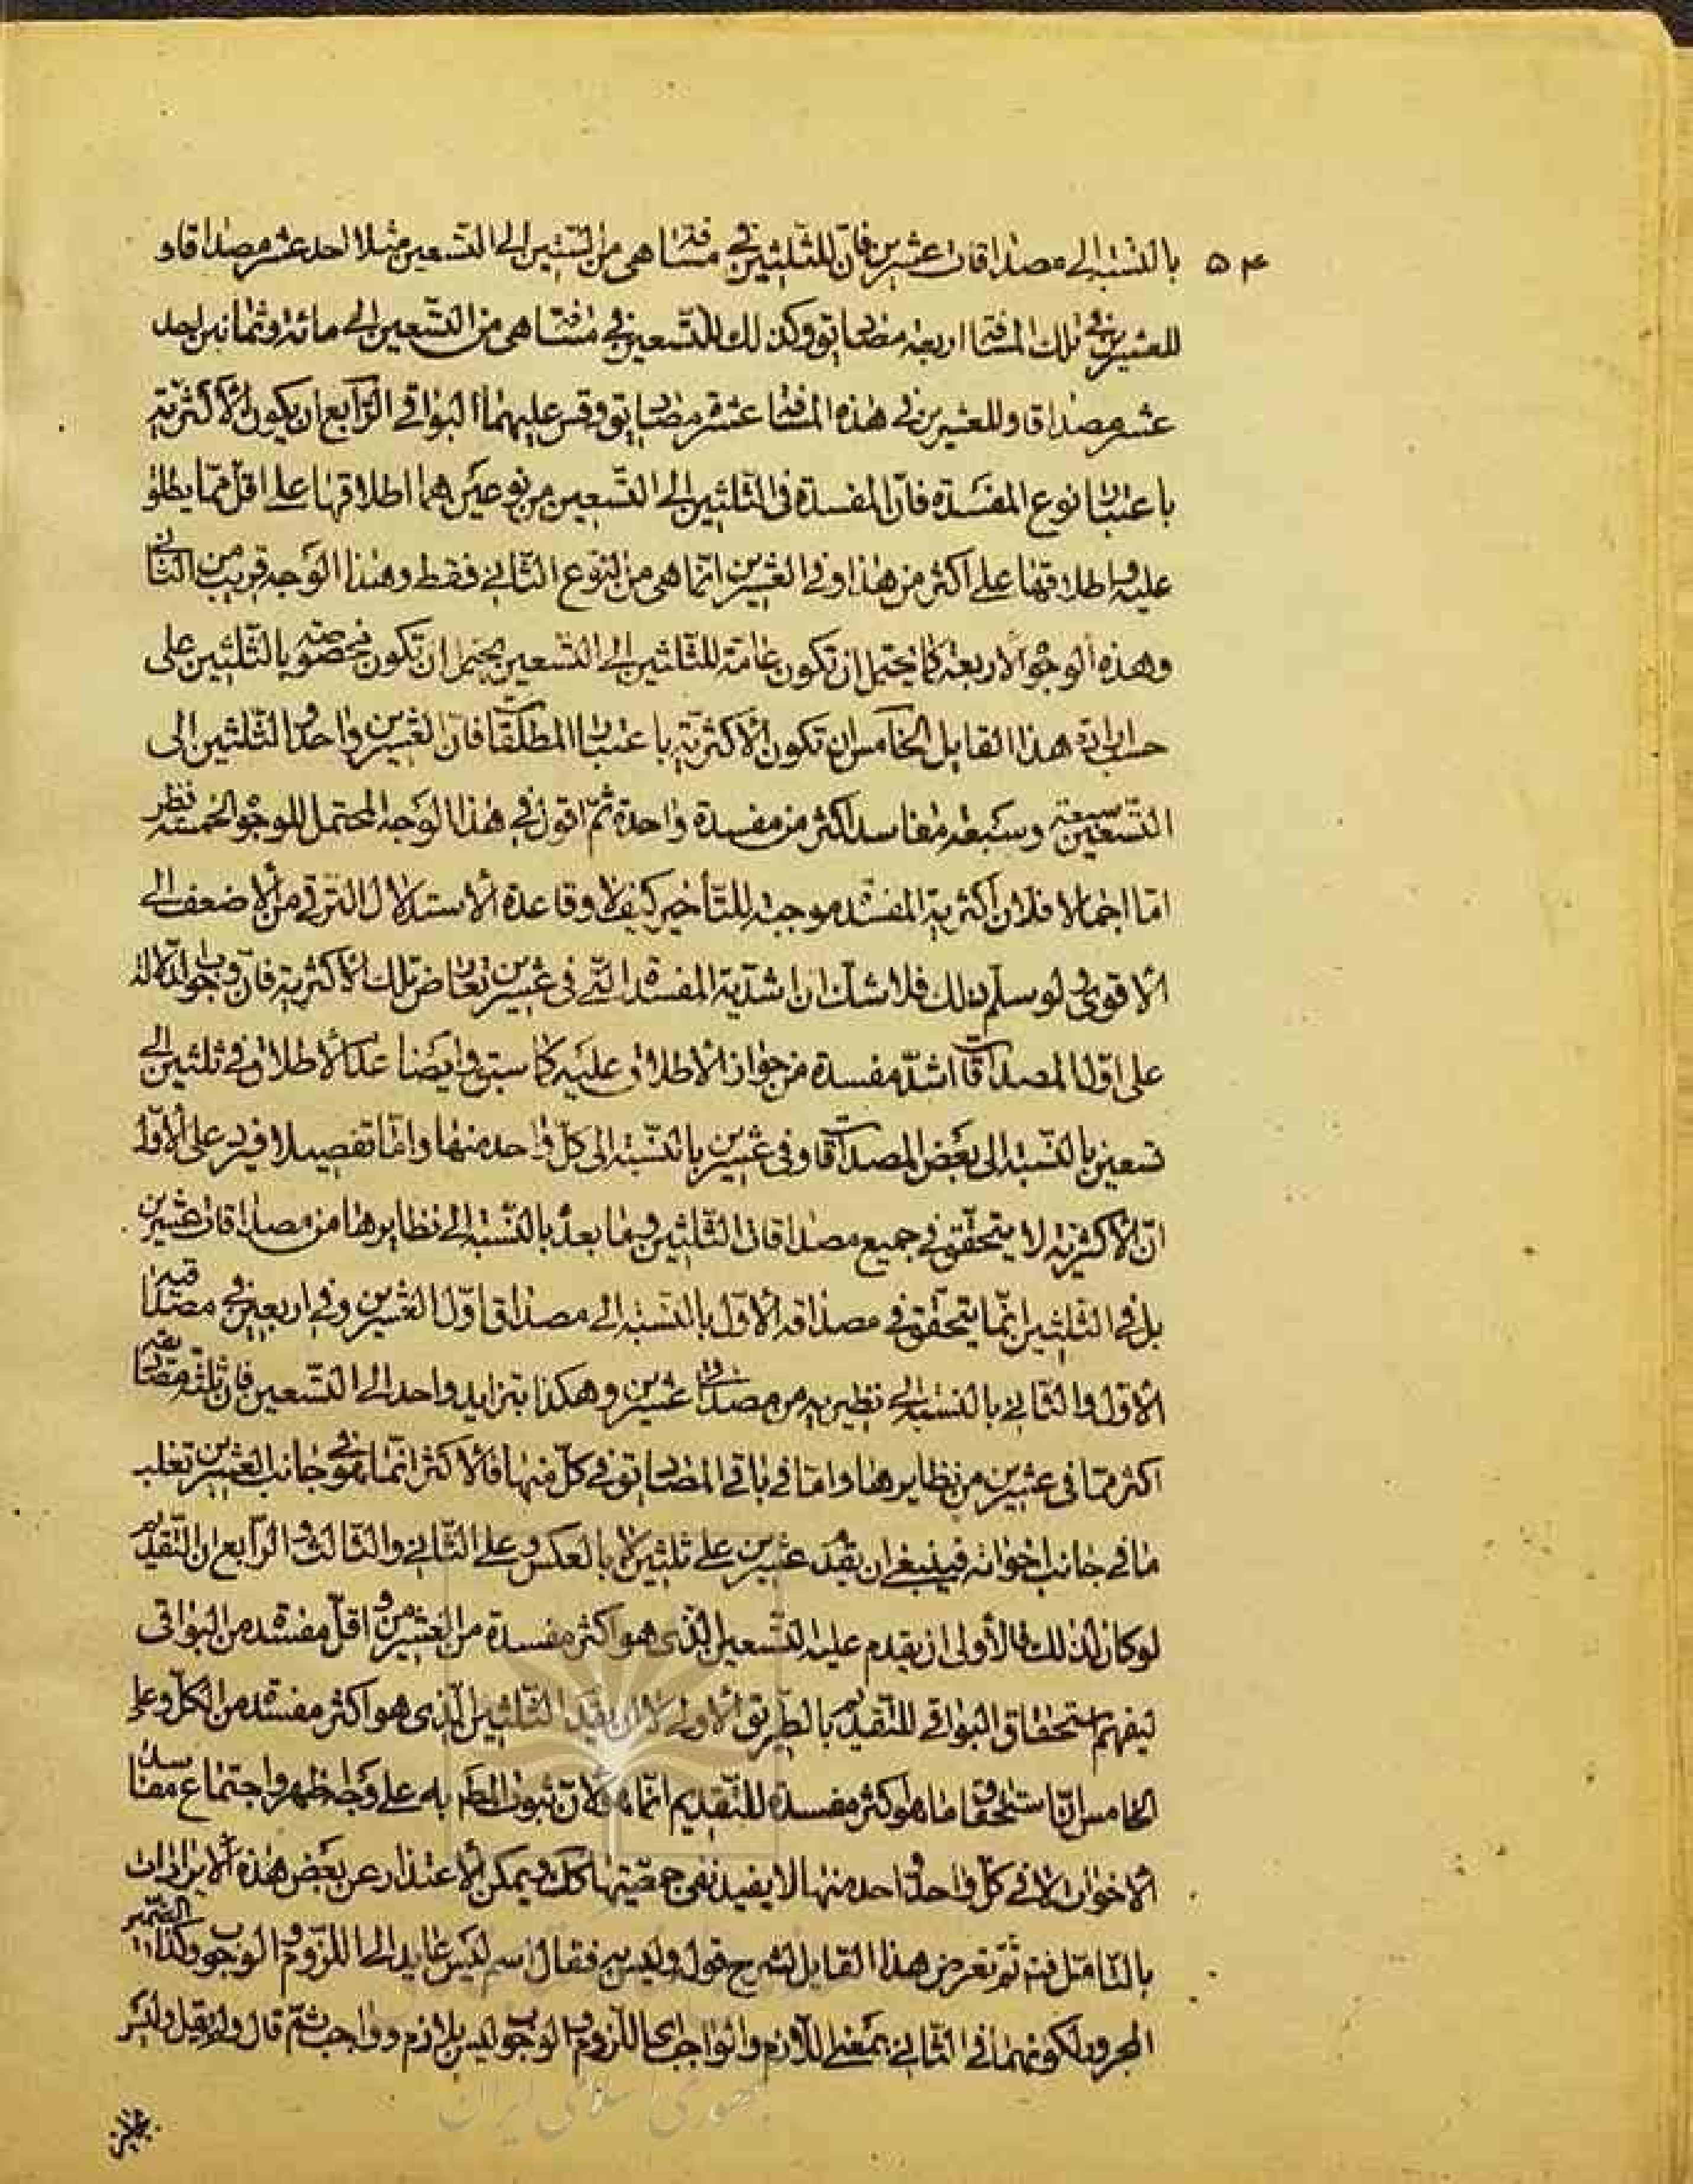 ۵۴ بالنسبة الى مصداقات عشرين فانّ للثلثين في مسافة هي من الستين الى التسعين مثلا احد عشر مصداقا و
للعشرين في تلك المسافة اربعة مصاديق وكذلك للتسعين في مسافة هي من التسعين الى مائة وثمانين احد
عشر مصداقا وللعشرين في هذه المسافة عشر مصاديق وقس عليهما البواقي الرّابع ان يكون الأكثريّة
باعتبار نوع المفسدة فانّ المفسدة في الثلثين الى التسعين من نوعين هما اطلاقها على اقلّ ممّا يطلق
عليه واطلاقها على اكثر من هذا وفي العشرين انّما هي من النّوع الثّاني فقط وهذا الوجه قريب من الثاني
وهذه الوجوه الاربعة كما يحتمل ان تكون عامّة للثلثين الى التسعين يحتمل ان تكون مختصة بالثلثين على
حسب ارادة هذا القايل الخامس ان تكون الأكثريّة باعتبار المطلقات فانّ العشرين واحد والثلثين الى
التسعين سبعة وسبعة مفاسد اكثر من مفسدة واحدة ثمّ اقول في هذا الوجه المحتمل للوجوه الخمسة نظر
امّا اجمالا فلانّ اكثرية المفسدة موجبة للتأخير كيف لا وقاعدة الاستدلال الترقي من الأضعف الى
الأقوى ولو سلم ذلك فلا شك ان اشدّية المفسدة التي في عشرين تعارض تلك الأكثرية فانّ وجوب الدلالة
على اوّل المصداقات اشدّ مفسدة من جواز الأطلاق عليه كما سبق وايضا عدم الأطلاق في ثلثين الى
تسعين بالنّسبة الى بعض المصداقات وفي عشرين بالنّسبة الى كلّ واحد منها وامّا تفصيلا فيرد على الأوّل
انّ الأكثرية لا يتحقّق في جميع مصداقات الثلثين وما بعده بالنّسبة الى نظايرها من مصداقات عشرين
بل في الثلثين انّما يتحقّق في مصداقه الأوّل بالنسبة الى مصداق اوّل العشرين وفي اربعين في مصداقيه
الأوّل والثاني بالنسبة الى نظيريه من مصداقي عشرين وهكذا بتزايد واحد الى التسعين فان ثلثة مصاديقه
اكثر ممّا في عشرين من نظايرها وامّا في باقي المصاديق في كلّ منها فالأكثر انّما هو في جانب العشرين تغلب
ما في جانب اخواته فينبغي ان يقدم عشرين على ثلثين لا بالعكس وعلى الثاني والثالث والرّابع ان التّقديم
لو كان لذلك فالأولى ان يقدم عليه التسعين الذي هو اكثر مفسدة من العشرين واقلّ مفسدة من البواقي
ليفهم استحقاق البواقي للتقديم بالطّريق الأولى لا ان يقدم الثلثين الذي هو اكثر مفسدة من الكلّ وعلى
الخامس انّ استحقاق ما هو اكثر مفسدة للتقديم انّما هو لانّ ثبوت المط به على وجه اظهر واجتماع مفاسد
الأخوات لا في كلّ واحد واحد منها لا يفيد نفي جمعيتها كك ويمكن الأعتذار عن بعض هذه الأيرادات
بالتأمّل فيه ثمّ تعرض هذا القايل لشرح قوله وليس به فقال اسم ليس عايد الى اللزوم والوجوب وكذا الضّمير
المجرور لكونهما في الثاني بمعنى اللّازم والواجب اي اللّزوم والوجوب ليس بلازم وواجب ثمّ قال ولم يقل وليس